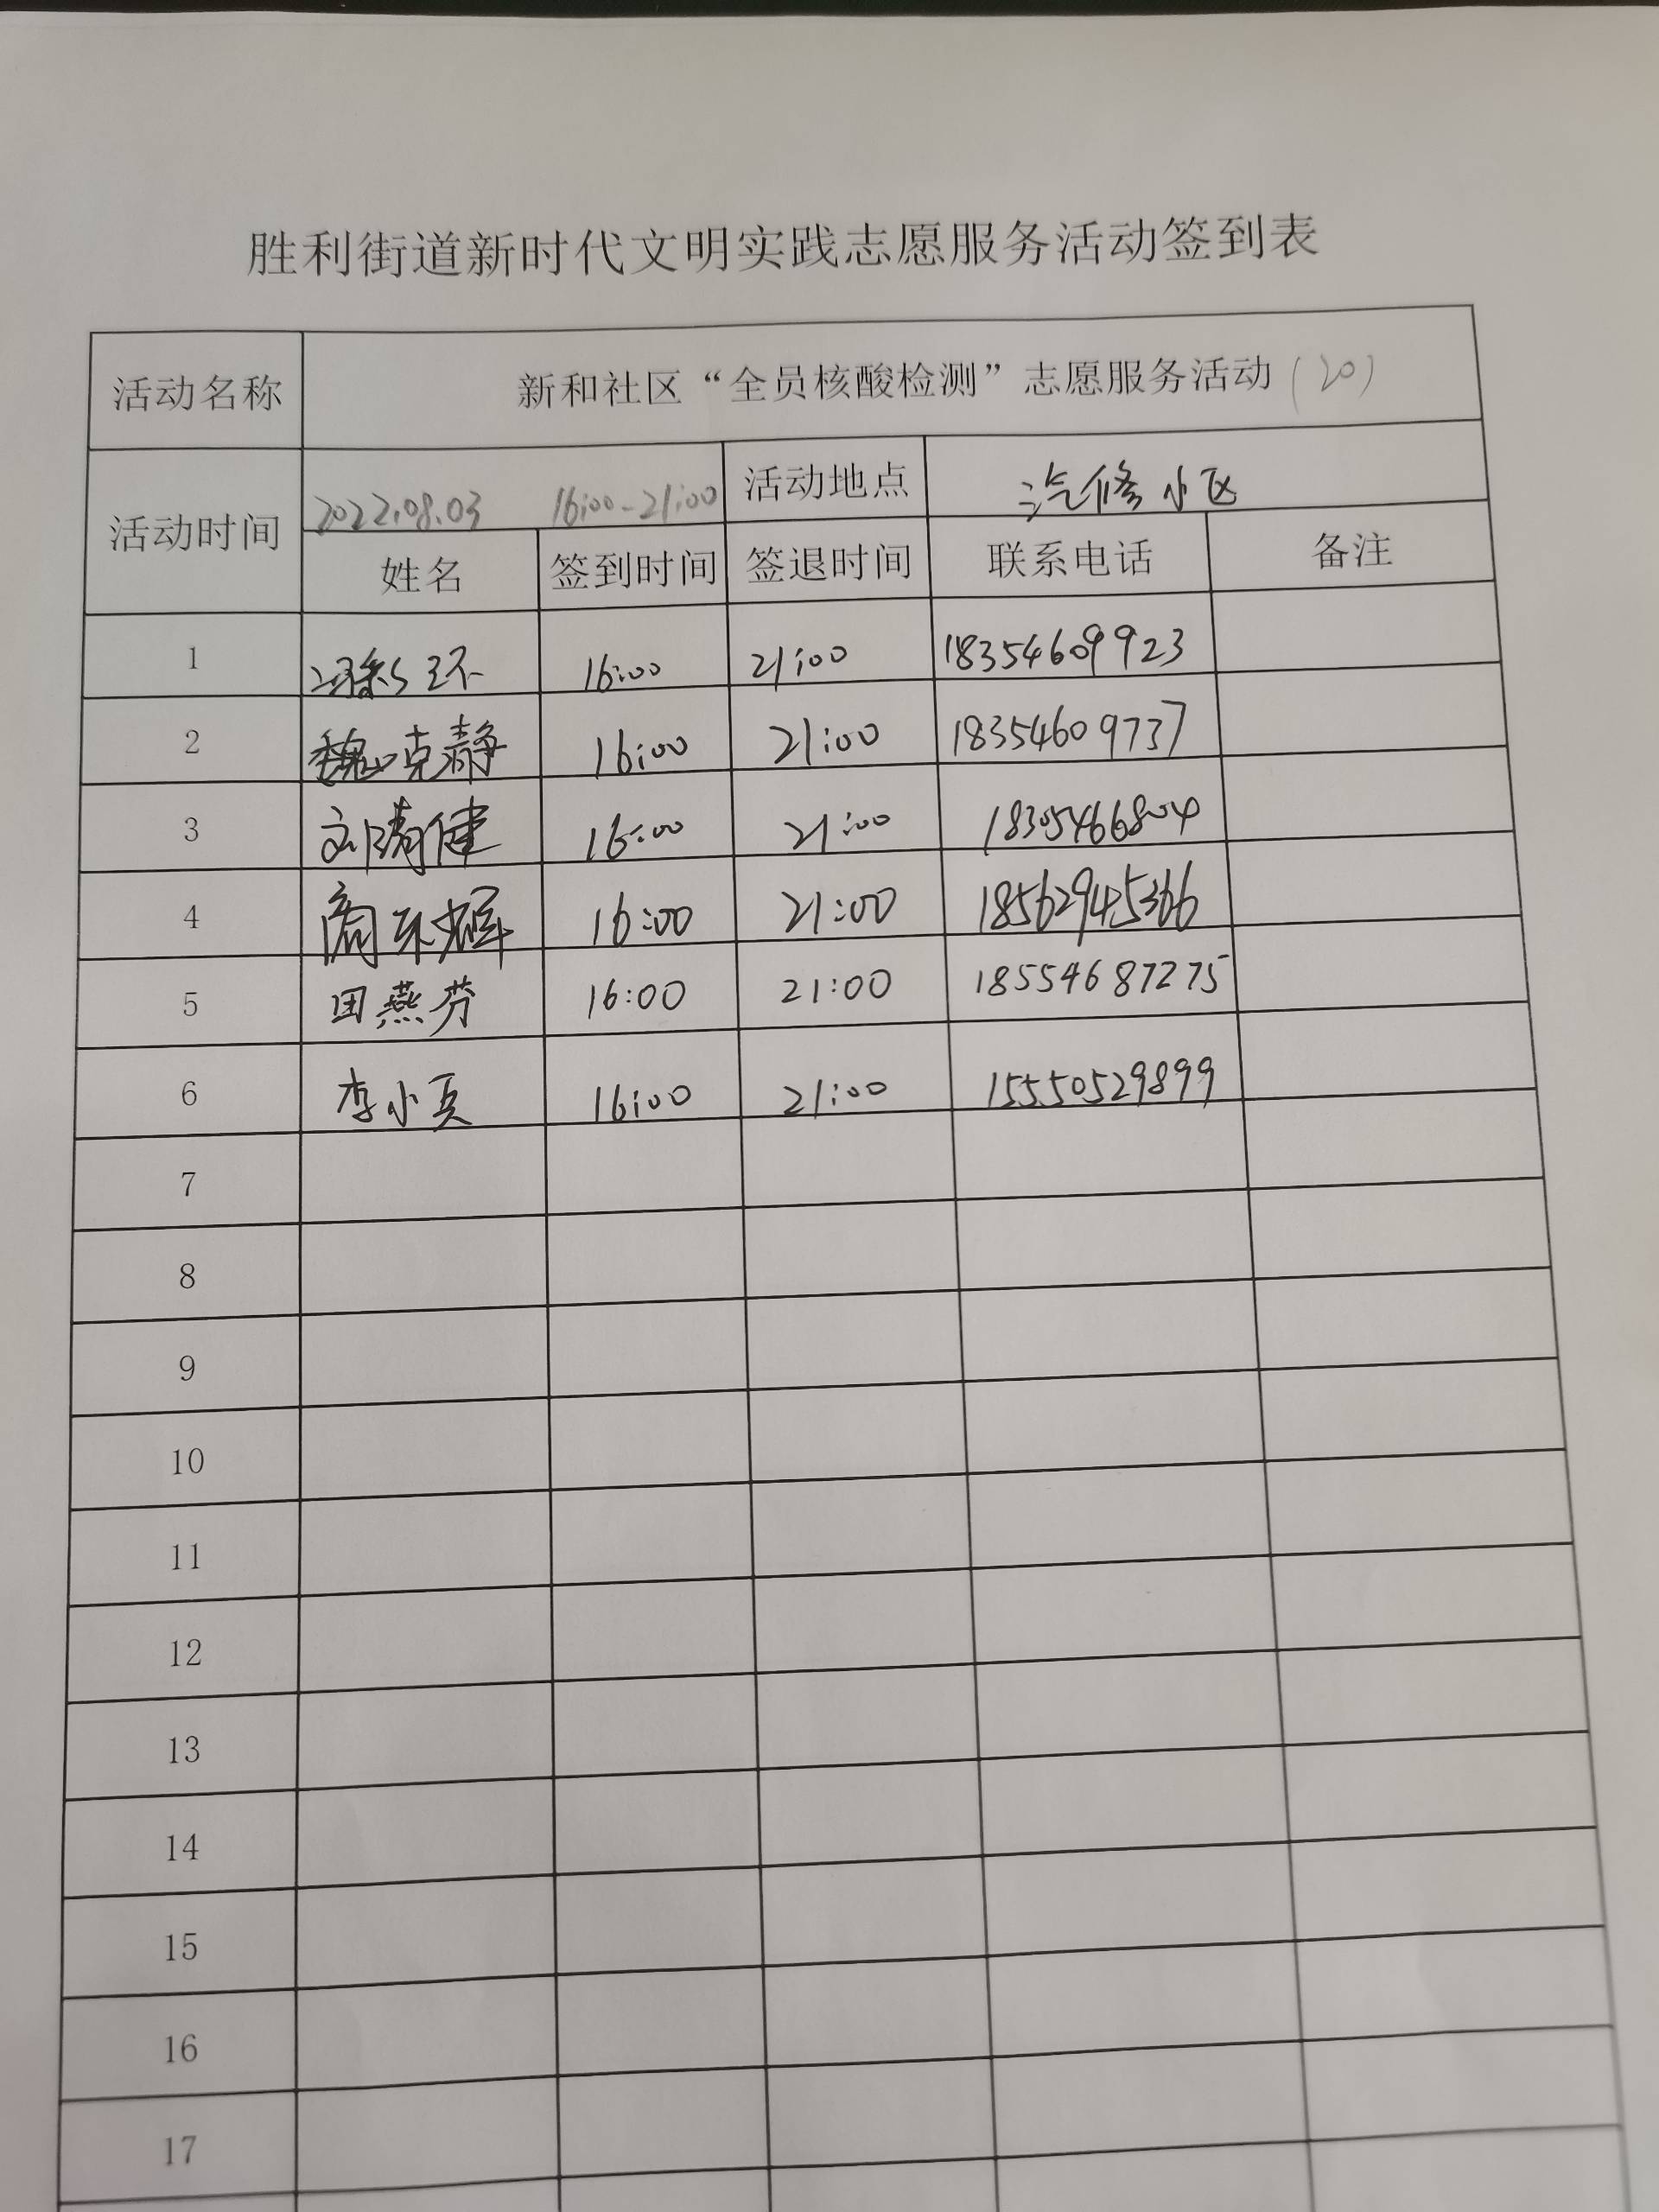 胜利街道新时代文明实践志愿服务活动签到表
活动名称 新和社区“全员核酸检测”志愿服务活动(20)
活动时间 2022.08.03 16:00-21:00 活动地点 汽修小区
姓名 签到时间 签退时间 联系电话 备注
1 16:00 21:00 18354609923
2 魏克静 16:00 21:00 18354609737
3 刘 健 16:00 21:00 18305466804
4 商 辉 16:00 21:00 18562945366
5 田燕芬 16:00 21:00 18554687275
6 李小兵 16:00 21:00 15550529899
7
8
9
10
11
12
13
14
15
16
17